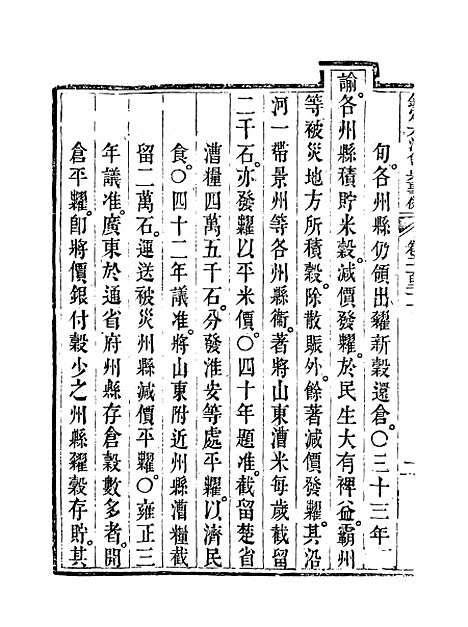 旬各州縣仍領出糶新穀還倉〇三十三年
諭各州縣積貯米穀減價發糶於民生大有裨益霸州
等被災地方所積穀除散賑外餘著減價發糶其沿
河一帶景州等各州縣衞著將山東漕米每歲截留
二千石亦發糶以平米價〇四十年題准截留楚省
漕糧四萬五千石分發淮安等處平糶以濟民
食〇四十二年議准將山東附近州縣漕糧截
留二萬石運送被災州縣減價平糶〇雍正三
年議准廣東於通省府州縣存倉穀數多者開
倉平糶即將價銀付穀少之州縣糴穀存貯其